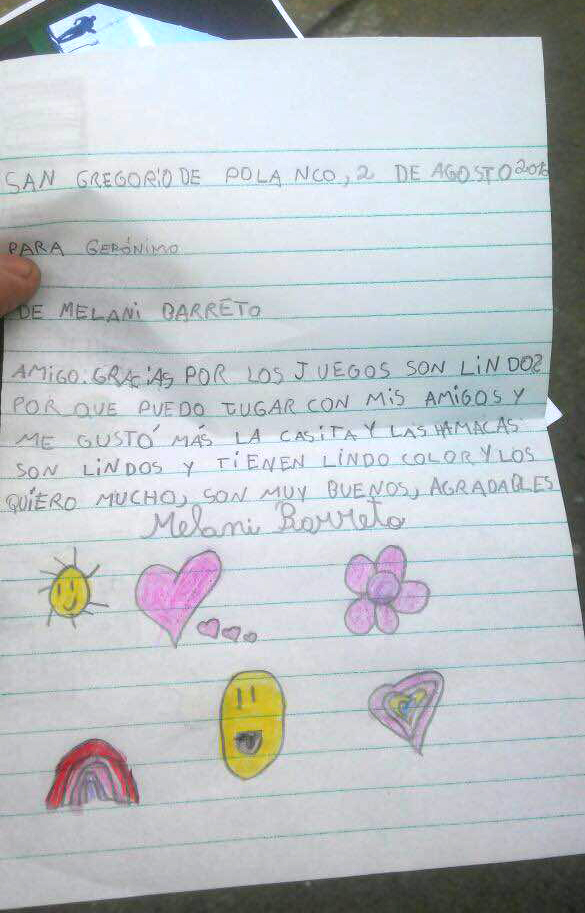 SAN GREGORIO DE POLANCO, 2 DE AGOSTO 2016
PARA GERÓNIMO
DE MELANI BARRETO
AMIGO: GRACIAS POR LOS JUEGOS SON LINDOS
POR QUE PUEDO JUGAR CON MIS AMIGOS Y
ME GUSTÓ MÁS LA CASITA Y LAS HAMACAS
SON LINDOS Y TIENEN LINDO COLOR Y LOS
QUIERO MUCHO, SON MUY BUENOS, AGRADABLES
Melani Barreto